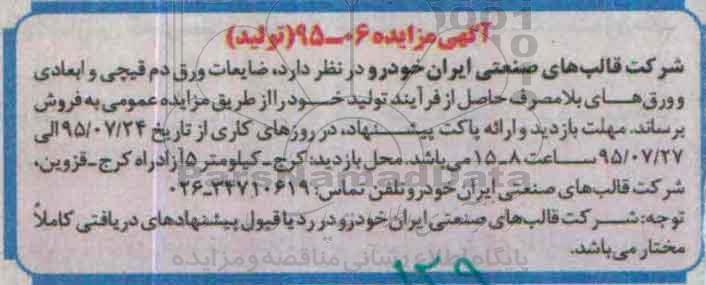 آگهی مزایده ۰۶-۹۵(تولید)
شرکت قالب‌های صنعتی ایران خودرو در نظر دارد، ضایعات ورق دم قیچی و ابعادی
و ورق‌های بلامصرف حاصل از فرآیند تولید خود را از طریق مزایده عمومی به فروش
برساند. مهلت بازدید و ارائه پاکت پیشنهاد، در روزهای کاری از تاریخ ۹۵/۰۷/۲۴ الی
۹۵/۰۷/۲۷ ساعت ۸-۱۵ می‌باشد. محل بازدید: کرج-کیلومتر ۵ آزادراه کرج-قزوین،
شرکت قالب‌های صنعتی ایران خودرو تلفن تماس: ۳۴۷۱۰۶۱۹-۰۲۶
توجه: شرکت قالب‌های صنعتی ایران خودرو در رد یا قبول پیشنهادهای دریافتی کاملاً
مختار می‌باشد.
ParsNamadData
پایگاه اطلاع رسانی مناقصه و مزایده
۱۲۹